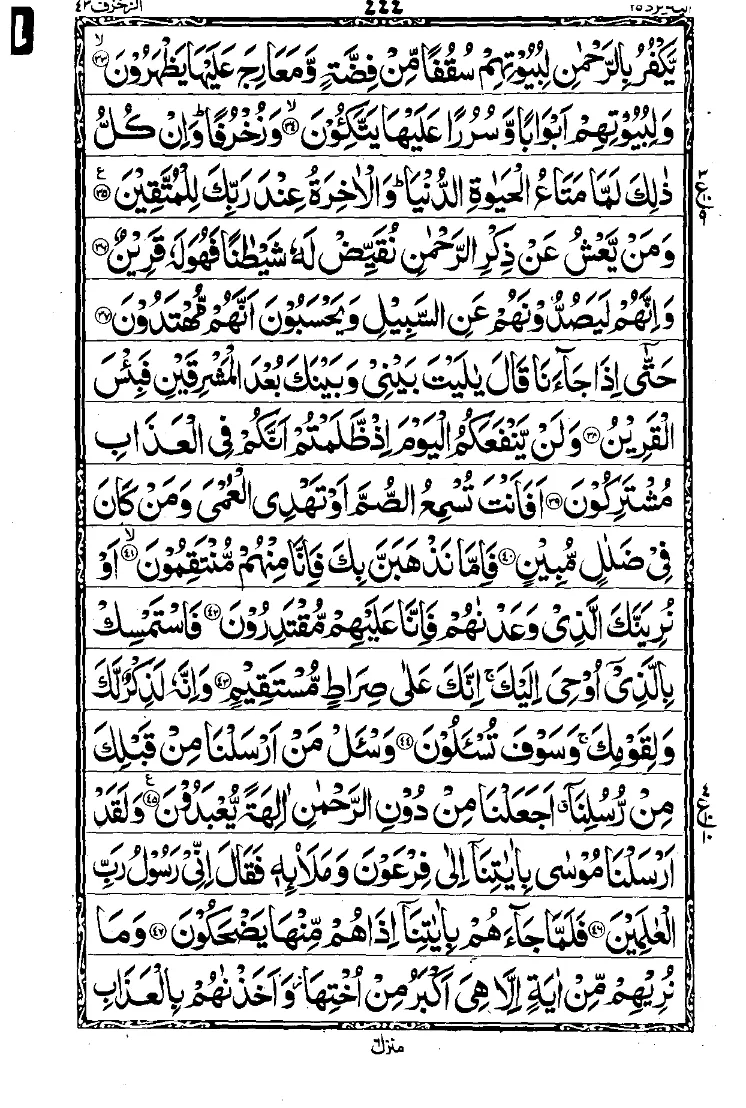 الزخرف ٤٣
٤٤٤
اليه يرد ٢٥
يَّكْفُرُ بِالرَّحْمٰنِ لِبُيُوْتِهِمْ سُقُفًا مِّنْ فِضَّةٍ وَّمَعَارِجَ عَلَيْهَا يَظْهَرُوْنَ ﴿٣٣﴾ۙ
وَلِبُيُوْتِهِمْ اَبْوَابًا وَّسُرُرًا عَلَيْهَا يَتَّكِـُٔوْنَ ﴿٣٤﴾ۙ وَزُخْرُفًا ؕ وَاِنْ كُلُّ
ذٰلِكَ لَمَّا مَتَاعُ الْحَيٰوةِ الدُّنْيَا ؕ وَالْاٰخِرَةُ عِنْدَ رَبِّكَ لِلْمُتَّقِيْنَ ﴿٣٥﴾ ع
وَمَنْ يَّعْشُ عَنْ ذِكْرِ الرَّحْمٰنِ نُقَيِّضْ لَهٗ شَيْطٰنًا فَهُوَ لَهٗ قَرِيْنٌ ﴿٣٦﴾
وَاِنَّهُمْ لَيَصُدُّوْنَهُمْ عَنِ السَّبِيْلِ وَيَحْسَبُوْنَ اَنَّهُمْ مُّهْتَدُوْنَ ﴿٣٧﴾
حَتّٰٓى اِذَا جَآءَنَا قَالَ يٰلَيْتَ بَيْنِيْ وَبَيْنَكَ بُعْدَ الْمَشْرِقَيْنِ فَبِئْسَ
الْقَرِيْنُ ﴿٣٨﴾ وَلَنْ يَّنْفَعَكُمُ الْيَوْمَ اِذْ ظَّلَمْتُمْ اَنَّكُمْ فِي الْعَذَابِ
مُشْتَرِكُوْنَ ﴿٣٩﴾ اَفَاَنْتَ تُسْمِعُ الصُّمَّ اَوْ تَهْدِى الْعُمْيَ وَمَنْ كَانَ
فِيْ ضَلٰلٍ مُّبِيْنٍ ﴿٤٠﴾ فَاِمَّا نَذْهَبَنَّ بِكَ فَاِنَّا مِنْهُمْ مُّنْتَقِمُوْنَ ﴿٤١﴾ۙ اَوْ
نُرِيَنَّكَ الَّذِيْ وَعَدْنٰهُمْ فَاِنَّا عَلَيْهِمْ مُّقْتَدِرُوْنَ ﴿٤٢﴾ فَاسْتَمْسِكْ
بِالَّذِيْٓ اُوْحِيَ اِلَيْكَ ۚ اِنَّكَ عَلٰى صِرَاطٍ مُّسْتَقِيْمٍ ﴿٤٣﴾ وَاِنَّهٗ لَذِكْرٌ لَّكَ
وَلِقَوْمِكَ ۚ وَسَوْفَ تُسْـَٔلُوْنَ ﴿٤٤﴾ وَسْـَٔلْ مَنْ اَرْسَلْنَا مِنْ قَبْلِكَ
مِنْ رُّسُلِنَآ اَجَعَلْنَا مِنْ دُوْنِ الرَّحْمٰنِ اٰلِهَةً يُّعْبَدُوْنَ ﴿٤٥﴾ ع وَلَقَدْ
اَرْسَلْنَا مُوْسٰى بِاٰيٰتِنَآ اِلٰى فِرْعَوْنَ وَمَلَا۟ئِهٖ فَقَالَ اِنِّيْ رَسُوْلُ رَبِّ
الْعٰلَمِيْنَ ﴿٤٦﴾ فَلَمَّا جَآءَهُمْ بِاٰيٰتِنَآ اِذَا هُمْ مِّنْهَا يَضْحَكُوْنَ ﴿٤٧﴾ وَمَا
نُرِيْهِمْ مِّنْ اٰيَةٍ اِلَّا هِيَ اَكْبَرُ مِنْ اُخْتِهَا ۡ وَاَخَذْنٰهُمْ بِالْعَذَابِ
منزل ٦